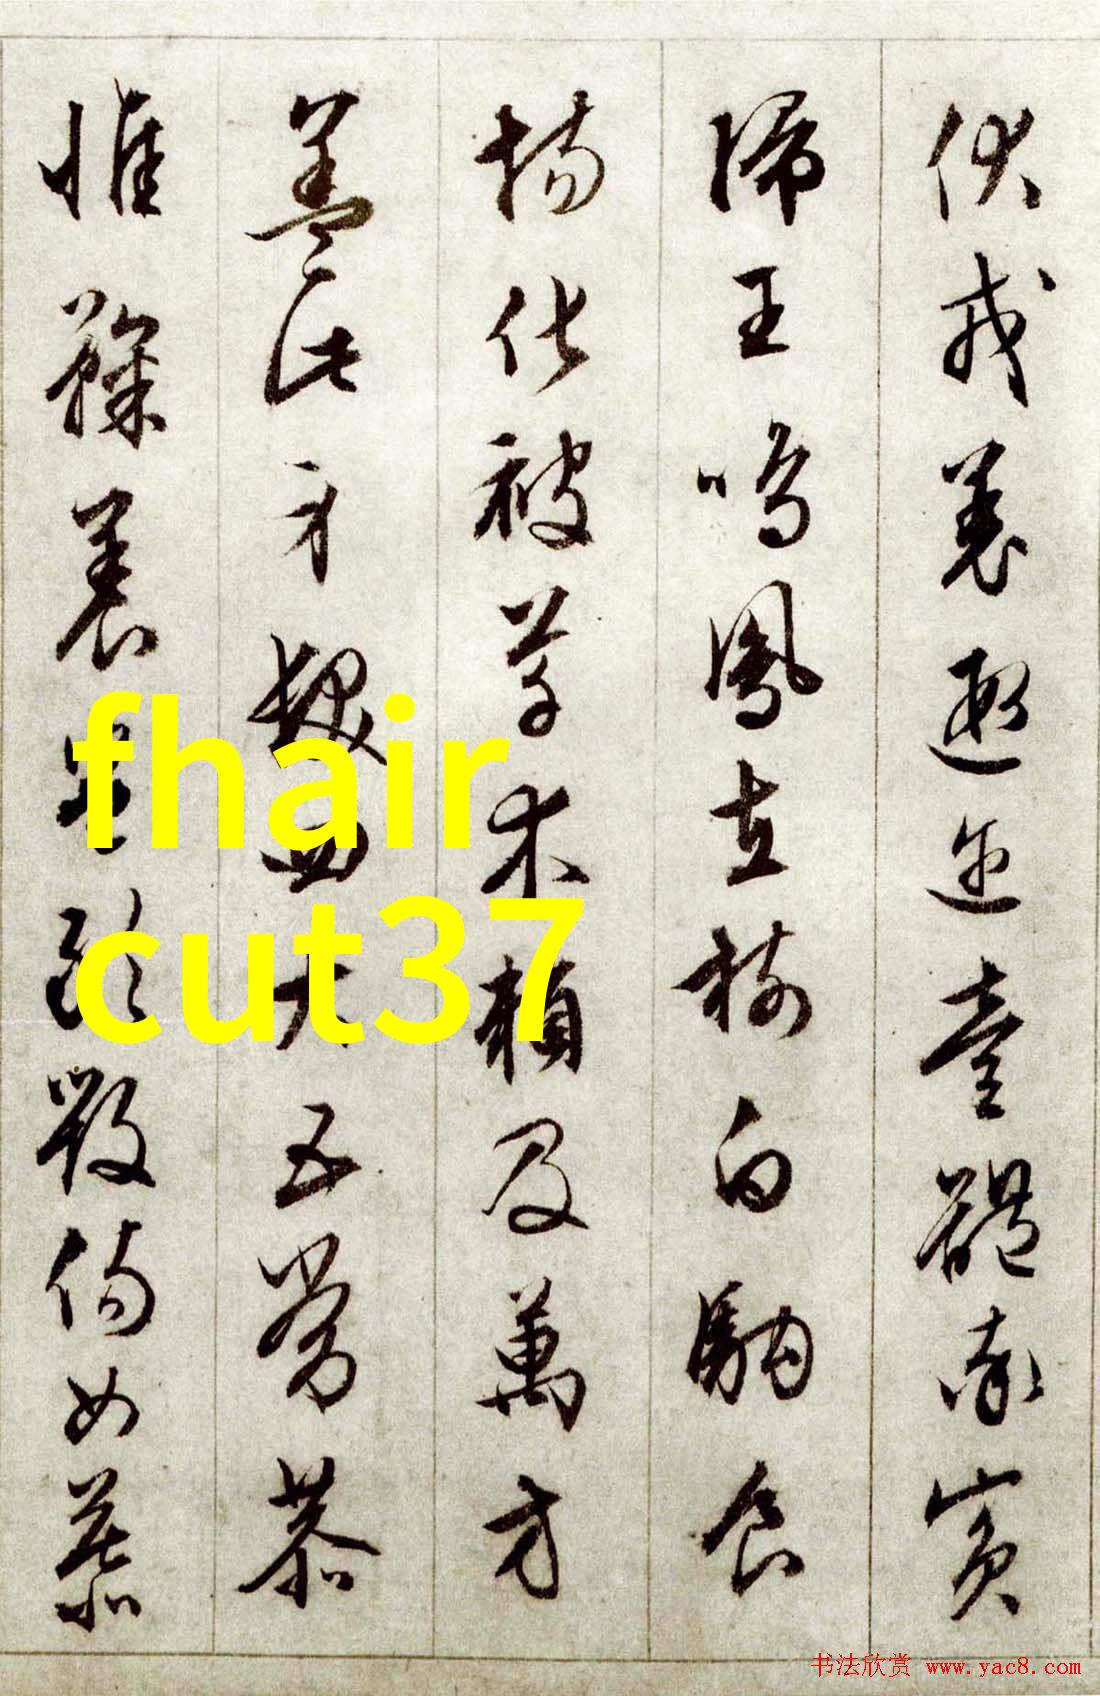 伏戎羌遐迩壹體率賓
歸王鳴鳳在樹白駒食
場化被草木賴及萬方
蓋此身髮四大五常恭
惟鞠養豈敢毀傷女慕
fhair
cut37
书法欣赏 www.yac8.com